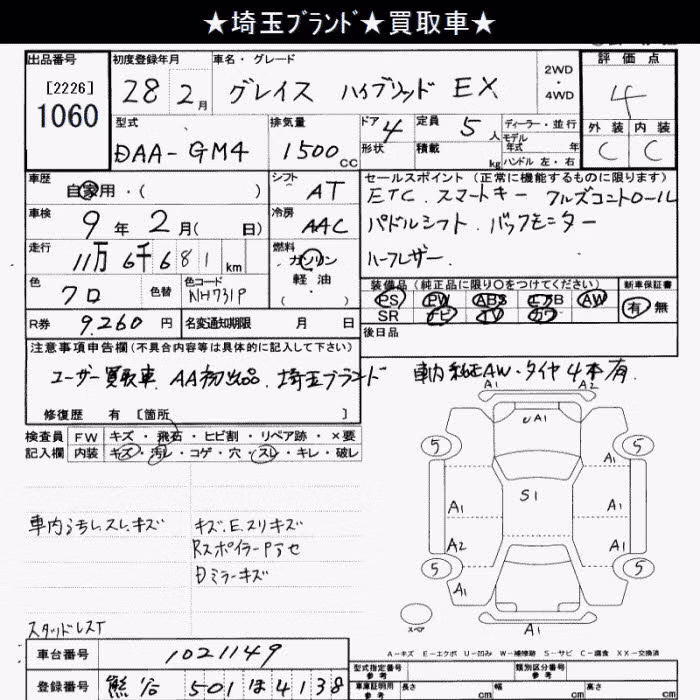 ★埼玉ﾌﾞﾗﾝﾄﾞ★買取車★
出品番号
[2226]
1060
初度登録年月
28 2月
車名・グレード
グレイス ハイブリッド EX
2WD
・
4WD
評価点
4
外装 内装
C C
型式
DAA-GM4
排気量
1500cc
ドア 4
形状
定員 5人
積載 kg
ディーラー・並行
モデル
年式 年
ハンドル 左・右
車歴
自家用・( )
シフト
AT
車検
9年2月( 日)
冷房
AAC
走行
11万6千681km
燃料
ガソリン
軽油
・( )
色
クロ
色替
色コード
NH731P
R券
9,260円
名変通知期限 月 日
セールスポイント (正常に機能するものに限ります)
ETC.スマートキー クルズコントロール
パドルシフト.バックモニター
ハーフレザー.
装備品(純正品に限り○をつけてください)
PS PW ABS エアB AW
SR ナビ TV カワ
新車保証書
有 無
後日品
注意事項申告欄(不具合内容等は具体的に記入して下さい)
ユーザー買取車.AA初出品.埼玉ブランド 車内純正AW・タイヤ4本有.
修復歴 有[箇所 ]
検査員
記入欄
FW キズ・飛石・ヒビ割・リペア跡・×要
内装 キズ・汚レ・コゲ・穴・スレ・キレ・破レ
車内ヨゴレ.スレ.キズ
キズ.E.スリキズ
RスポイラーPハゼ
Dミラーキズ
スタッドレスT
A1 A2
UA1
5 5
A1
S1
A1 A1
A2 A1
5 5
A1
A1
スペア
A-キズ E-エクボ U-凹み W-補修跡 S-サビ C-腐食 XX-交換済
車台番号
1021149
登録番号
501 ほ 4138
型式指定番号
参考
類別区分番号
参考
車庫証明用
参考
長さ cm
幅 cm
高さ cm